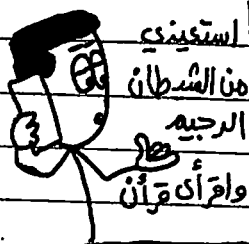 استعيذي
من الشيطان
الرجيم
واقرأي قرآن